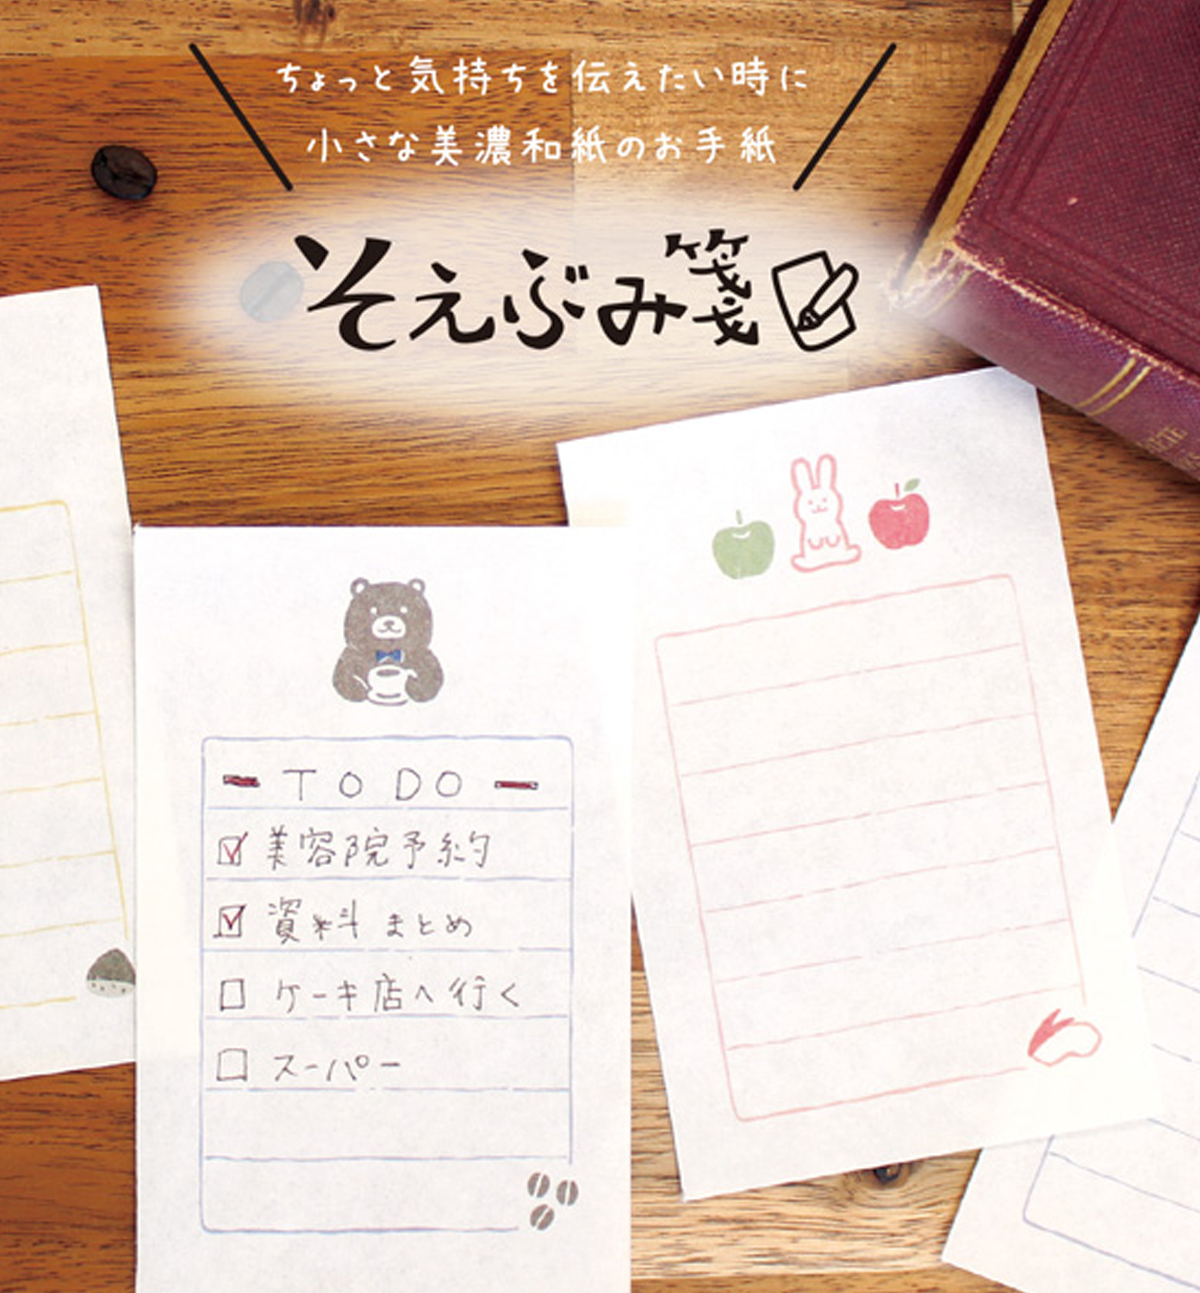 ちょっと気持ちを伝えたい時に
小さな美濃和紙のお手紙
そえぶみ箋
TODO
美容院予約
資料まとめ
ケーキ店へ行く
スーパー